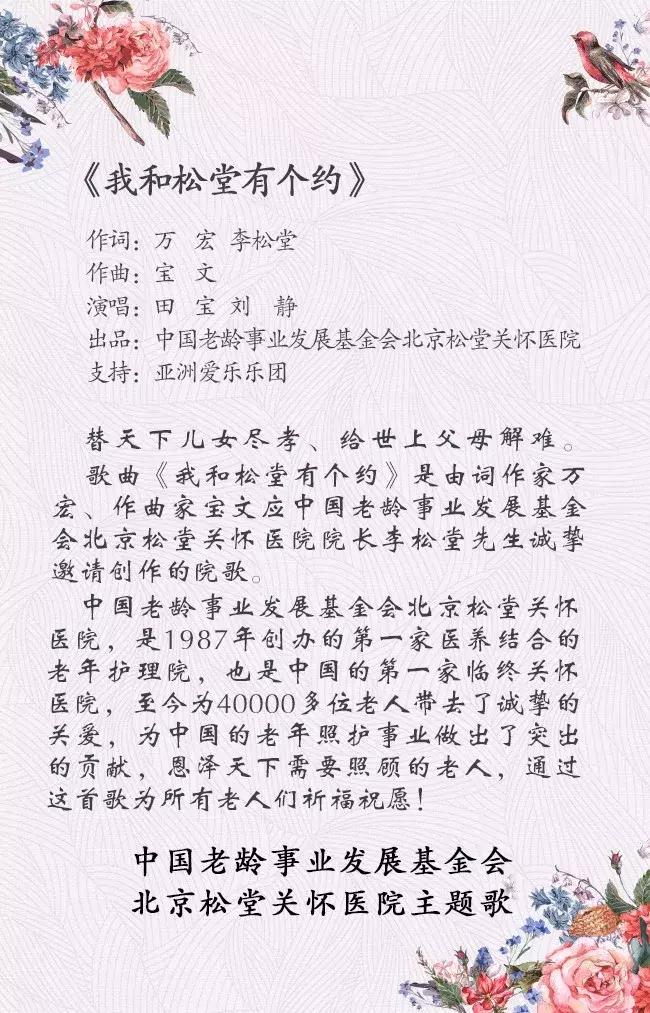 《我和松堂有个约》
作词：万 宏 李松堂
作曲：宝 文
演唱：田 宝 刘 静
出品：中国老龄事业发展基金会北京松堂关怀医院
支持：亚洲爱乐乐团
替天下儿女尽孝、给世上父母解难。
歌曲《我和松堂有个约》是由词作家万
宏、作曲家宝文应中国老龄事业发展基金
会北京松堂关怀医院院长李松堂先生诚挚
邀请创作的院歌。
中国老龄事业发展基金会北京松堂关怀
医院，是1987年创办的第一家医养结合的
老年护理院，也是中国的第一家临终关怀
医院，至今为40000多位老人带去了诚挚的
关爱，为中国的老年照护事业做出了突出
的贡献，恩泽天下需要照顾的老人，通过
这首歌为所有老人们祈福祝愿！
中国老龄事业发展基金会
北京松堂关怀医院主题歌